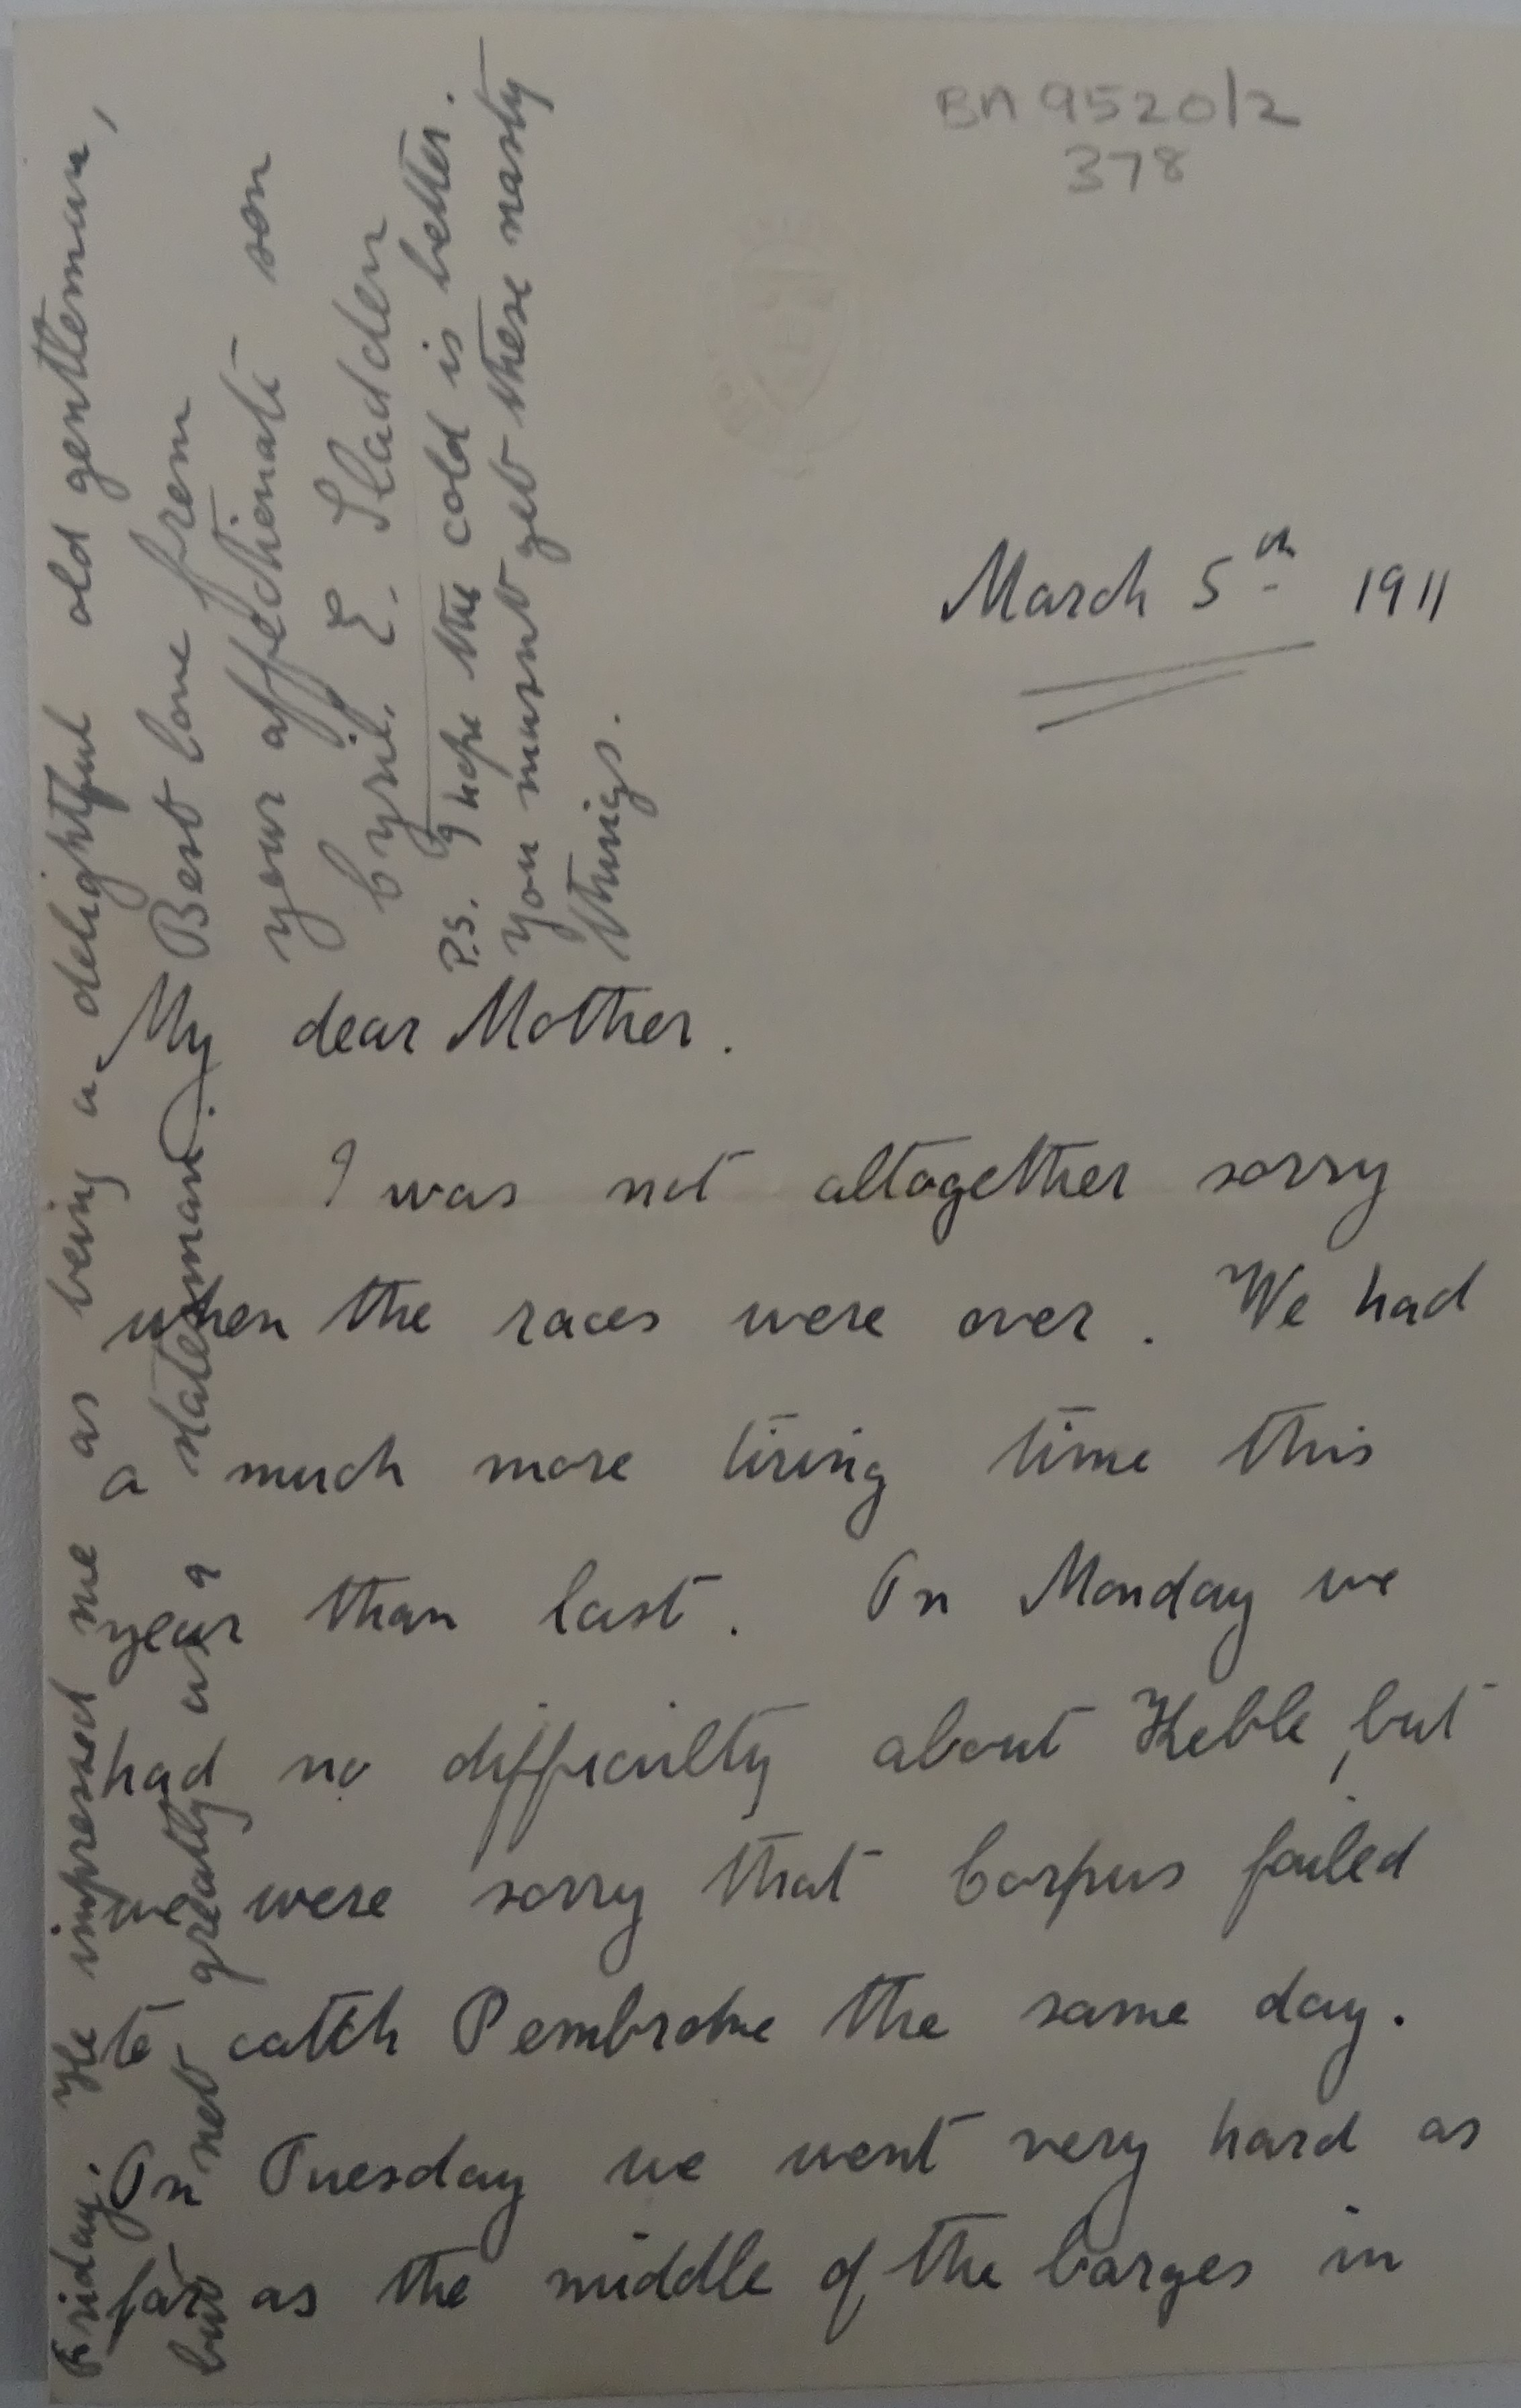 BA 9520/2
378
March 5th 1911
My dear Mother.
I was not altogether sorry
when the races were over. We had
a much more tiring time this
year than last. On Monday we
had no difficulty about Keble, but
we were sorry that Corpus failed
to catch Pembroke the same day.
On Tuesday we went very hard as
far as the middle of the barges in
Friday. He impressed me as being a delightful old gentleman,
but not greatly as a statesman.
Best love from
your affectionate son
Cyril E. Sladden
P.S. I hope the cold is better.
You mustnt get these nasty
things.